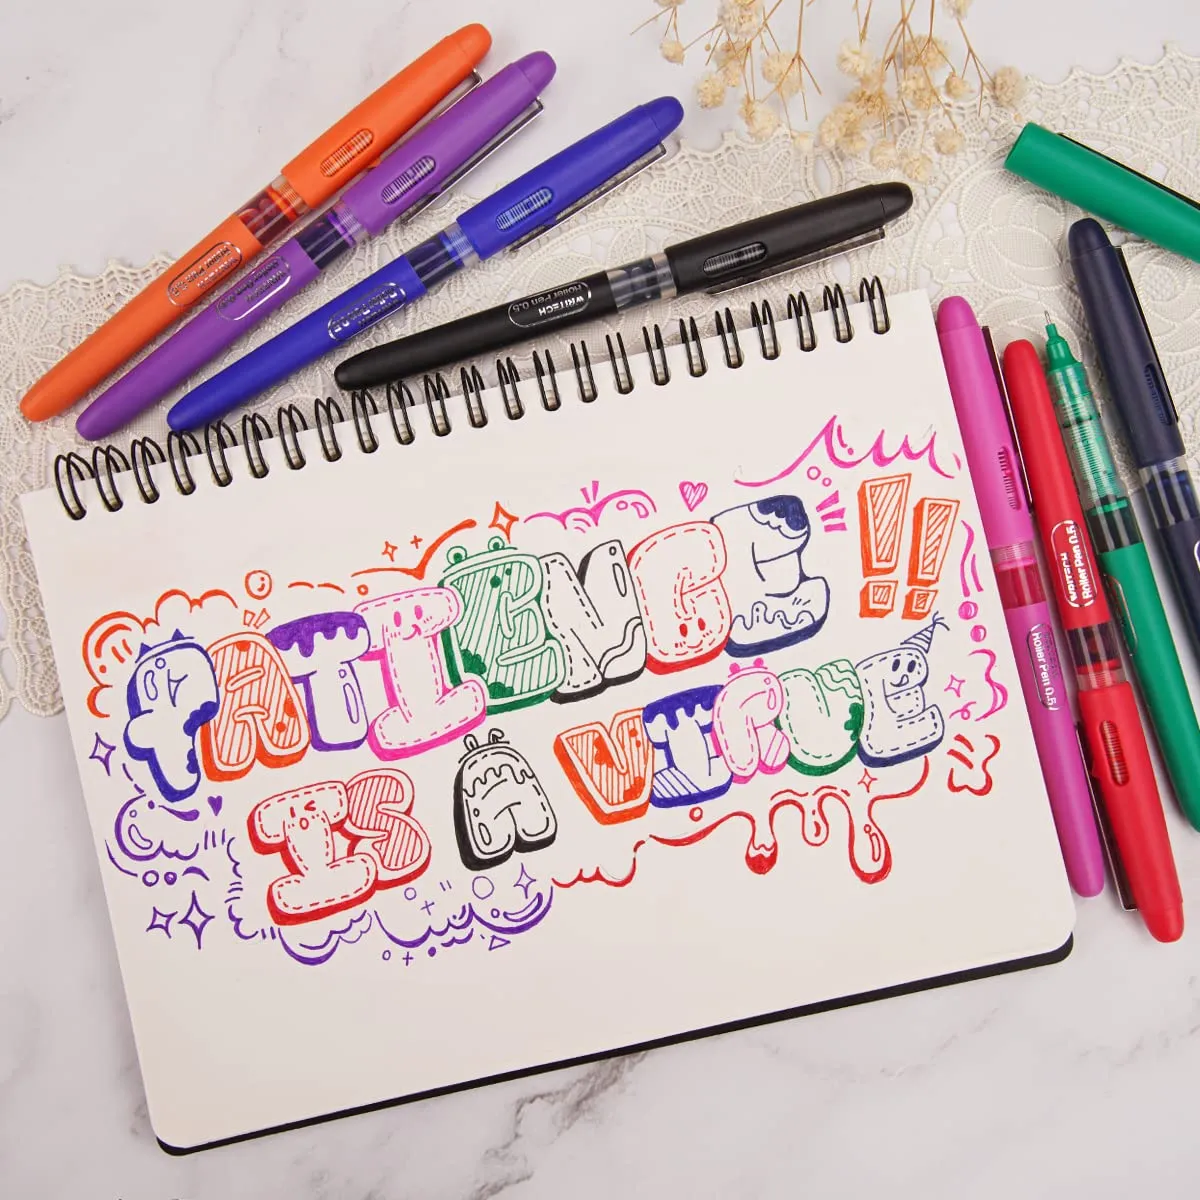 PATIENCE!!
IS A VIRUE
WRITECH
Roller Pen 0.5
WRITECH
Roller Pen 0.5
Roller Pen 0.5